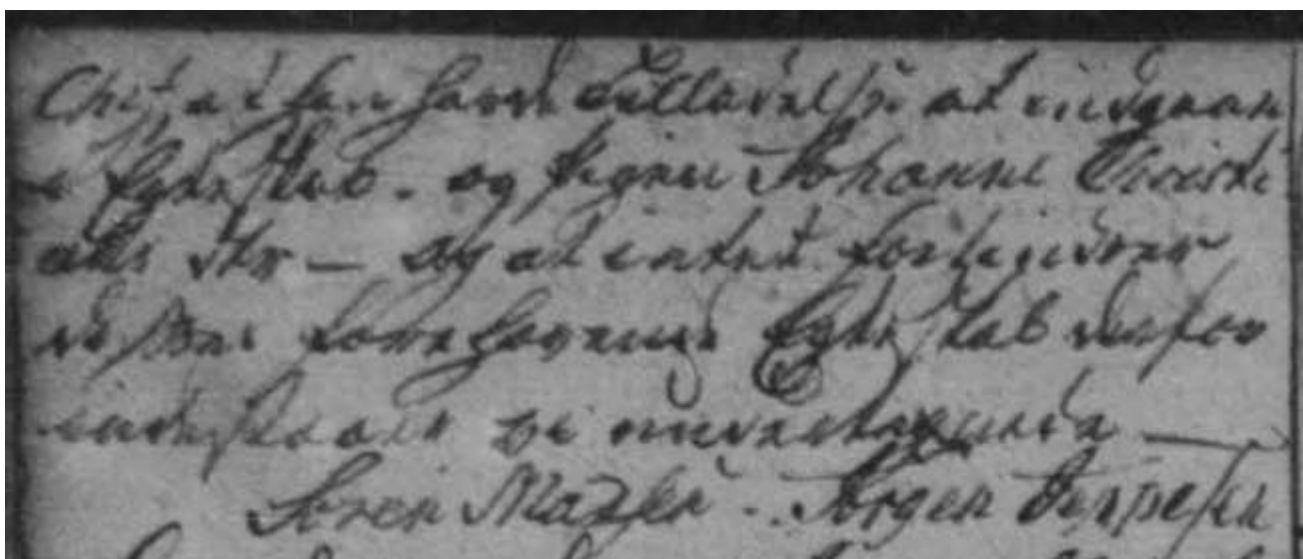 Chef at han haver Tilladelse at indgaae
i Egteskab. og Pigen Johanne Christi
ans Dtr — og at intet forhindrer
disses forehavende Egteskab derfor
indestaaer vi underteignede —
Soren Madsen . Jörgen Jeppesen